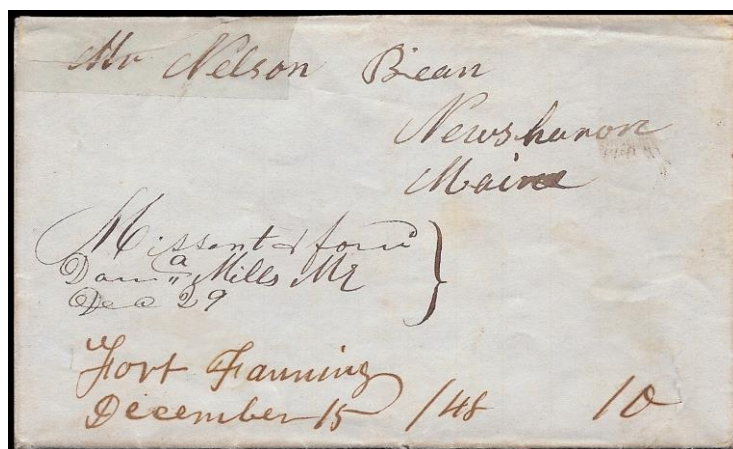 Mr Nelson Bean
Newsharon
Maine
Missent & forw
Dama Mills Me
Dec 29
Fort Fanning
December 15 /48 10